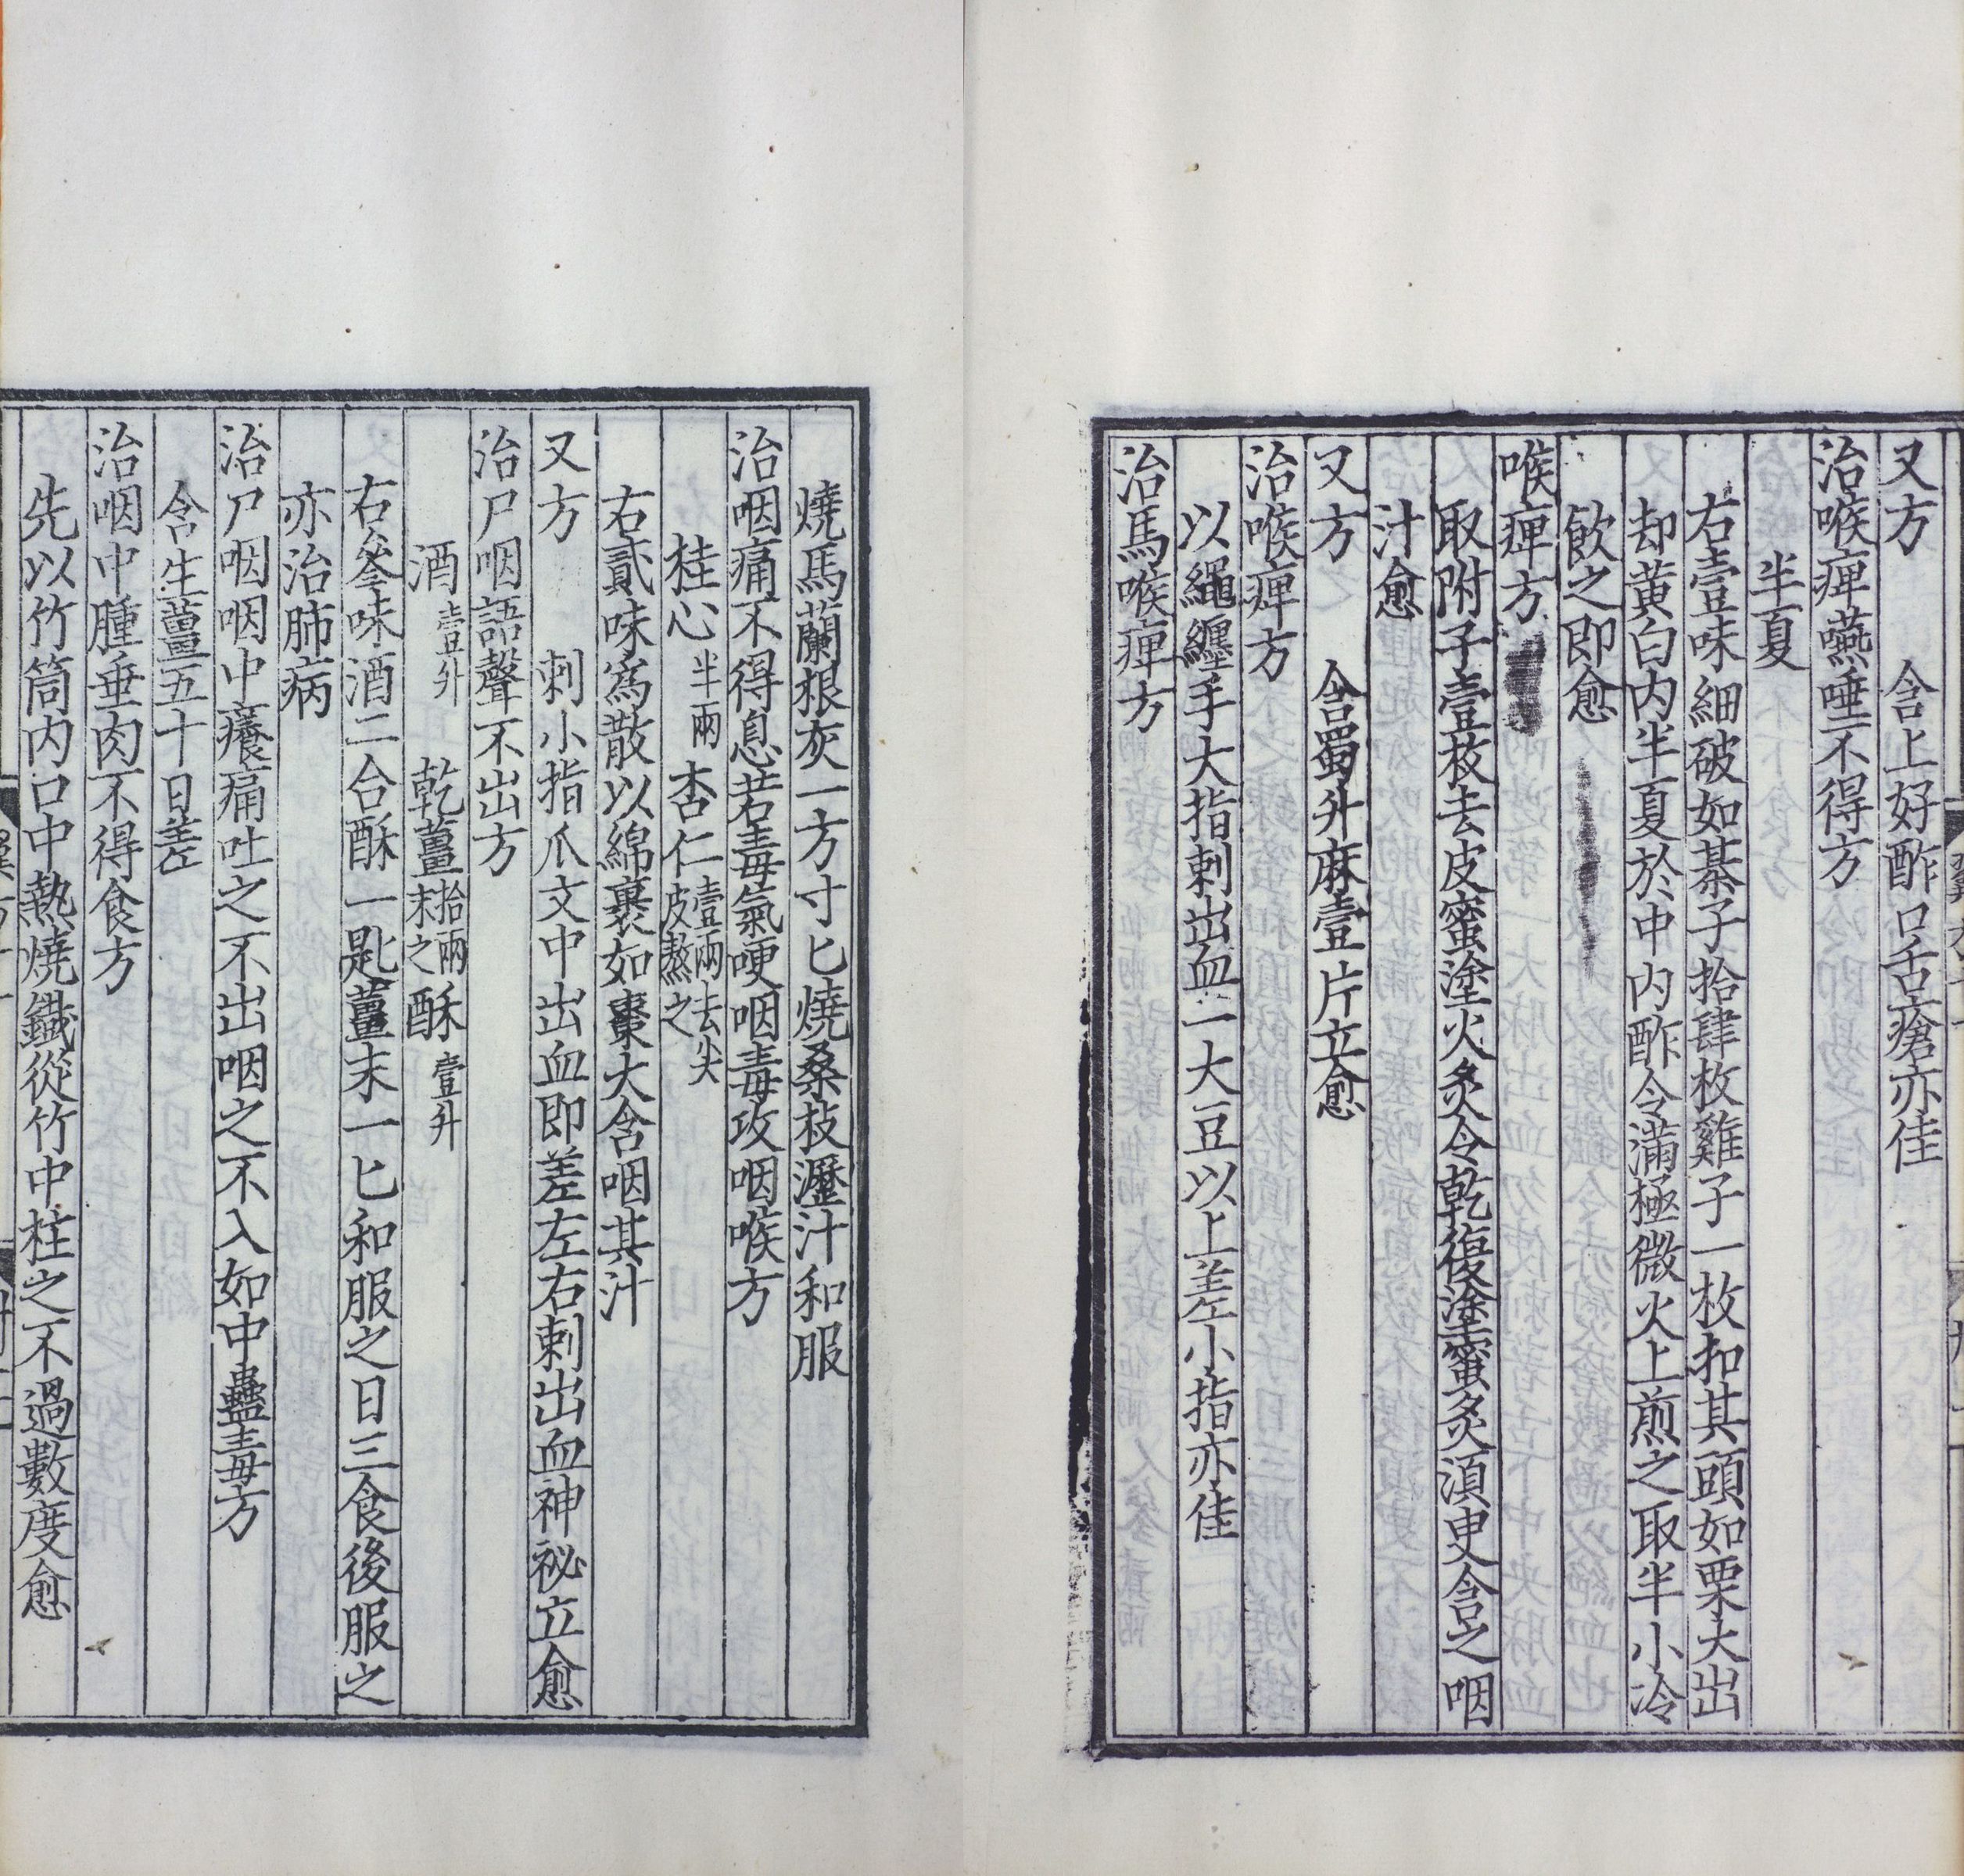 又方　含上好酢口舌瘡亦佳
治喉痺嚥唾不得方
半夏
右壹味細破如棊子拾肆枚雞子一枚扣其頭如栗大出
却黄白内半夏於中内酢令滿極微火上煎之取半小冷
飲之即愈
喉痺方
取附子壹枚去皮蜜塗火炙令乾復塗蜜炙須臾含之咽
汁愈
又方　含蜀升麻壹片立愈
治喉痺方
以繩纒手大指刺出血一大豆以上差小指亦佳
治馬喉痺方
燒馬蘭根灰一方寸匕燒桑枝瀝汁和服
治咽痛不得息若毒氣哽咽毒攻咽喉方
桂心半兩　杏仁壹兩去尖皮熬之
右貳味爲散以綿裹如棗大含咽其汁
又方　刺小指爪文中出血即差左右刺出血神祕立愈
治尸咽語聲不出方
酒壹升　乾薑拾兩末之　酥壹升
右叁味酒二合酥一匙薑末一匕和服之日三食後服之
亦治肺病
治尸咽咽中癢痛吐之不出咽之不入如中蠱毒方
含生薑五十日差
治咽中腫垂肉不得食方
先以竹筒内口中熱燒鐵從竹中柱之不過數度愈